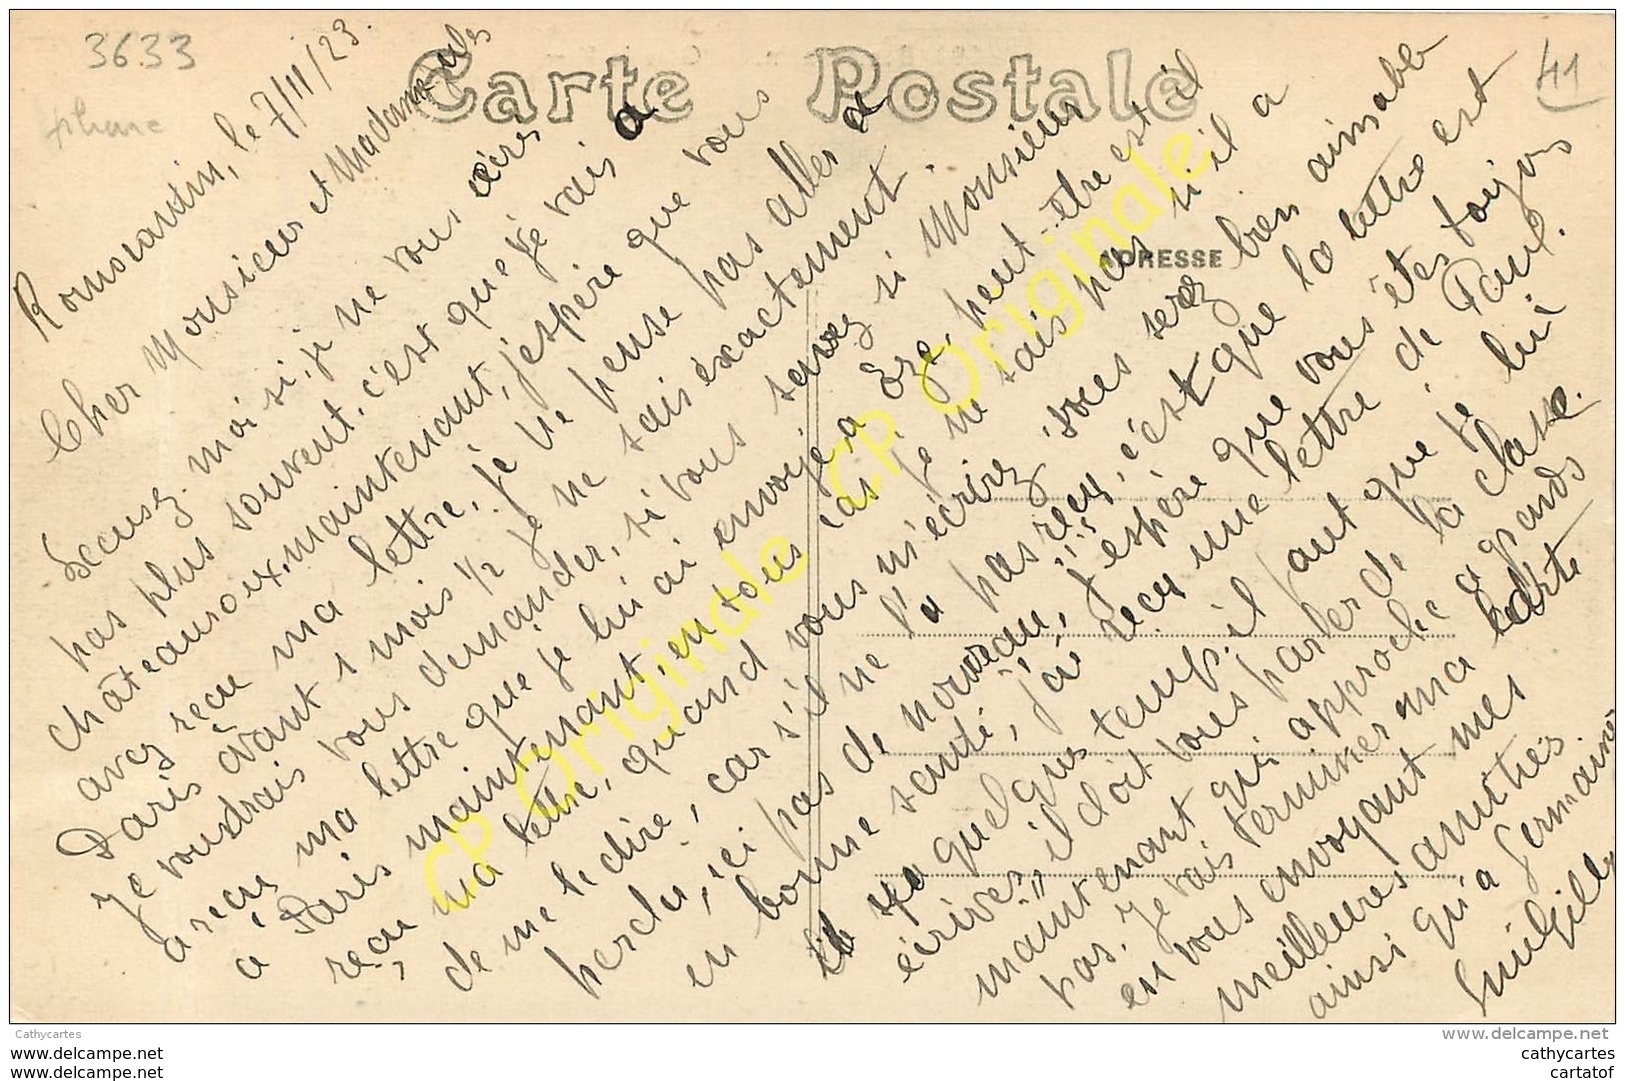 3633
41
Carte Postale
ADRESSE
Romorantin, le 7/11/23.
Cher Monsieur et Madame
Excusez moi si, je ne vous écris
pas plus souvent, c'est que je vais a
châteauroux, maintenant, j'espère que vous
avez reçu ma lettre, je ne pense pas aller a
Paris avant 1 mois 1/2 je ne sais exactement.
Je voudrais vous demander, si vous savez si Monsieur
a reçu ma lettre que je lui ai envoyé, a peut-etre est il
à Paris maintenant, en tous cas je ne sais pas si il a
reçu ma lettre, quand vous m'écrirez, vous serez bien aimable
de me le dire, car s'il ne l'a pas reçu, c'est que la lettre est
perdu, ici pas de nouveau, j'espère que vous êtes toujours
en bonne santé, j'ai recu une lettre de Paul.
il y a quelques temps, il faut que je lui
écrives, il doit vous parler de la classe.
maintenant qui approche a grands
pas. Je vais terminer ma carte
en vous envoyant mes
meilleures amitiés
ainsi qu'a Germaine
CP Originale CP Originale CP Originale
Cathycartes
www.delcampe.net
www.delcampe.com
www.delcampe.com
cathycartes
cartatof